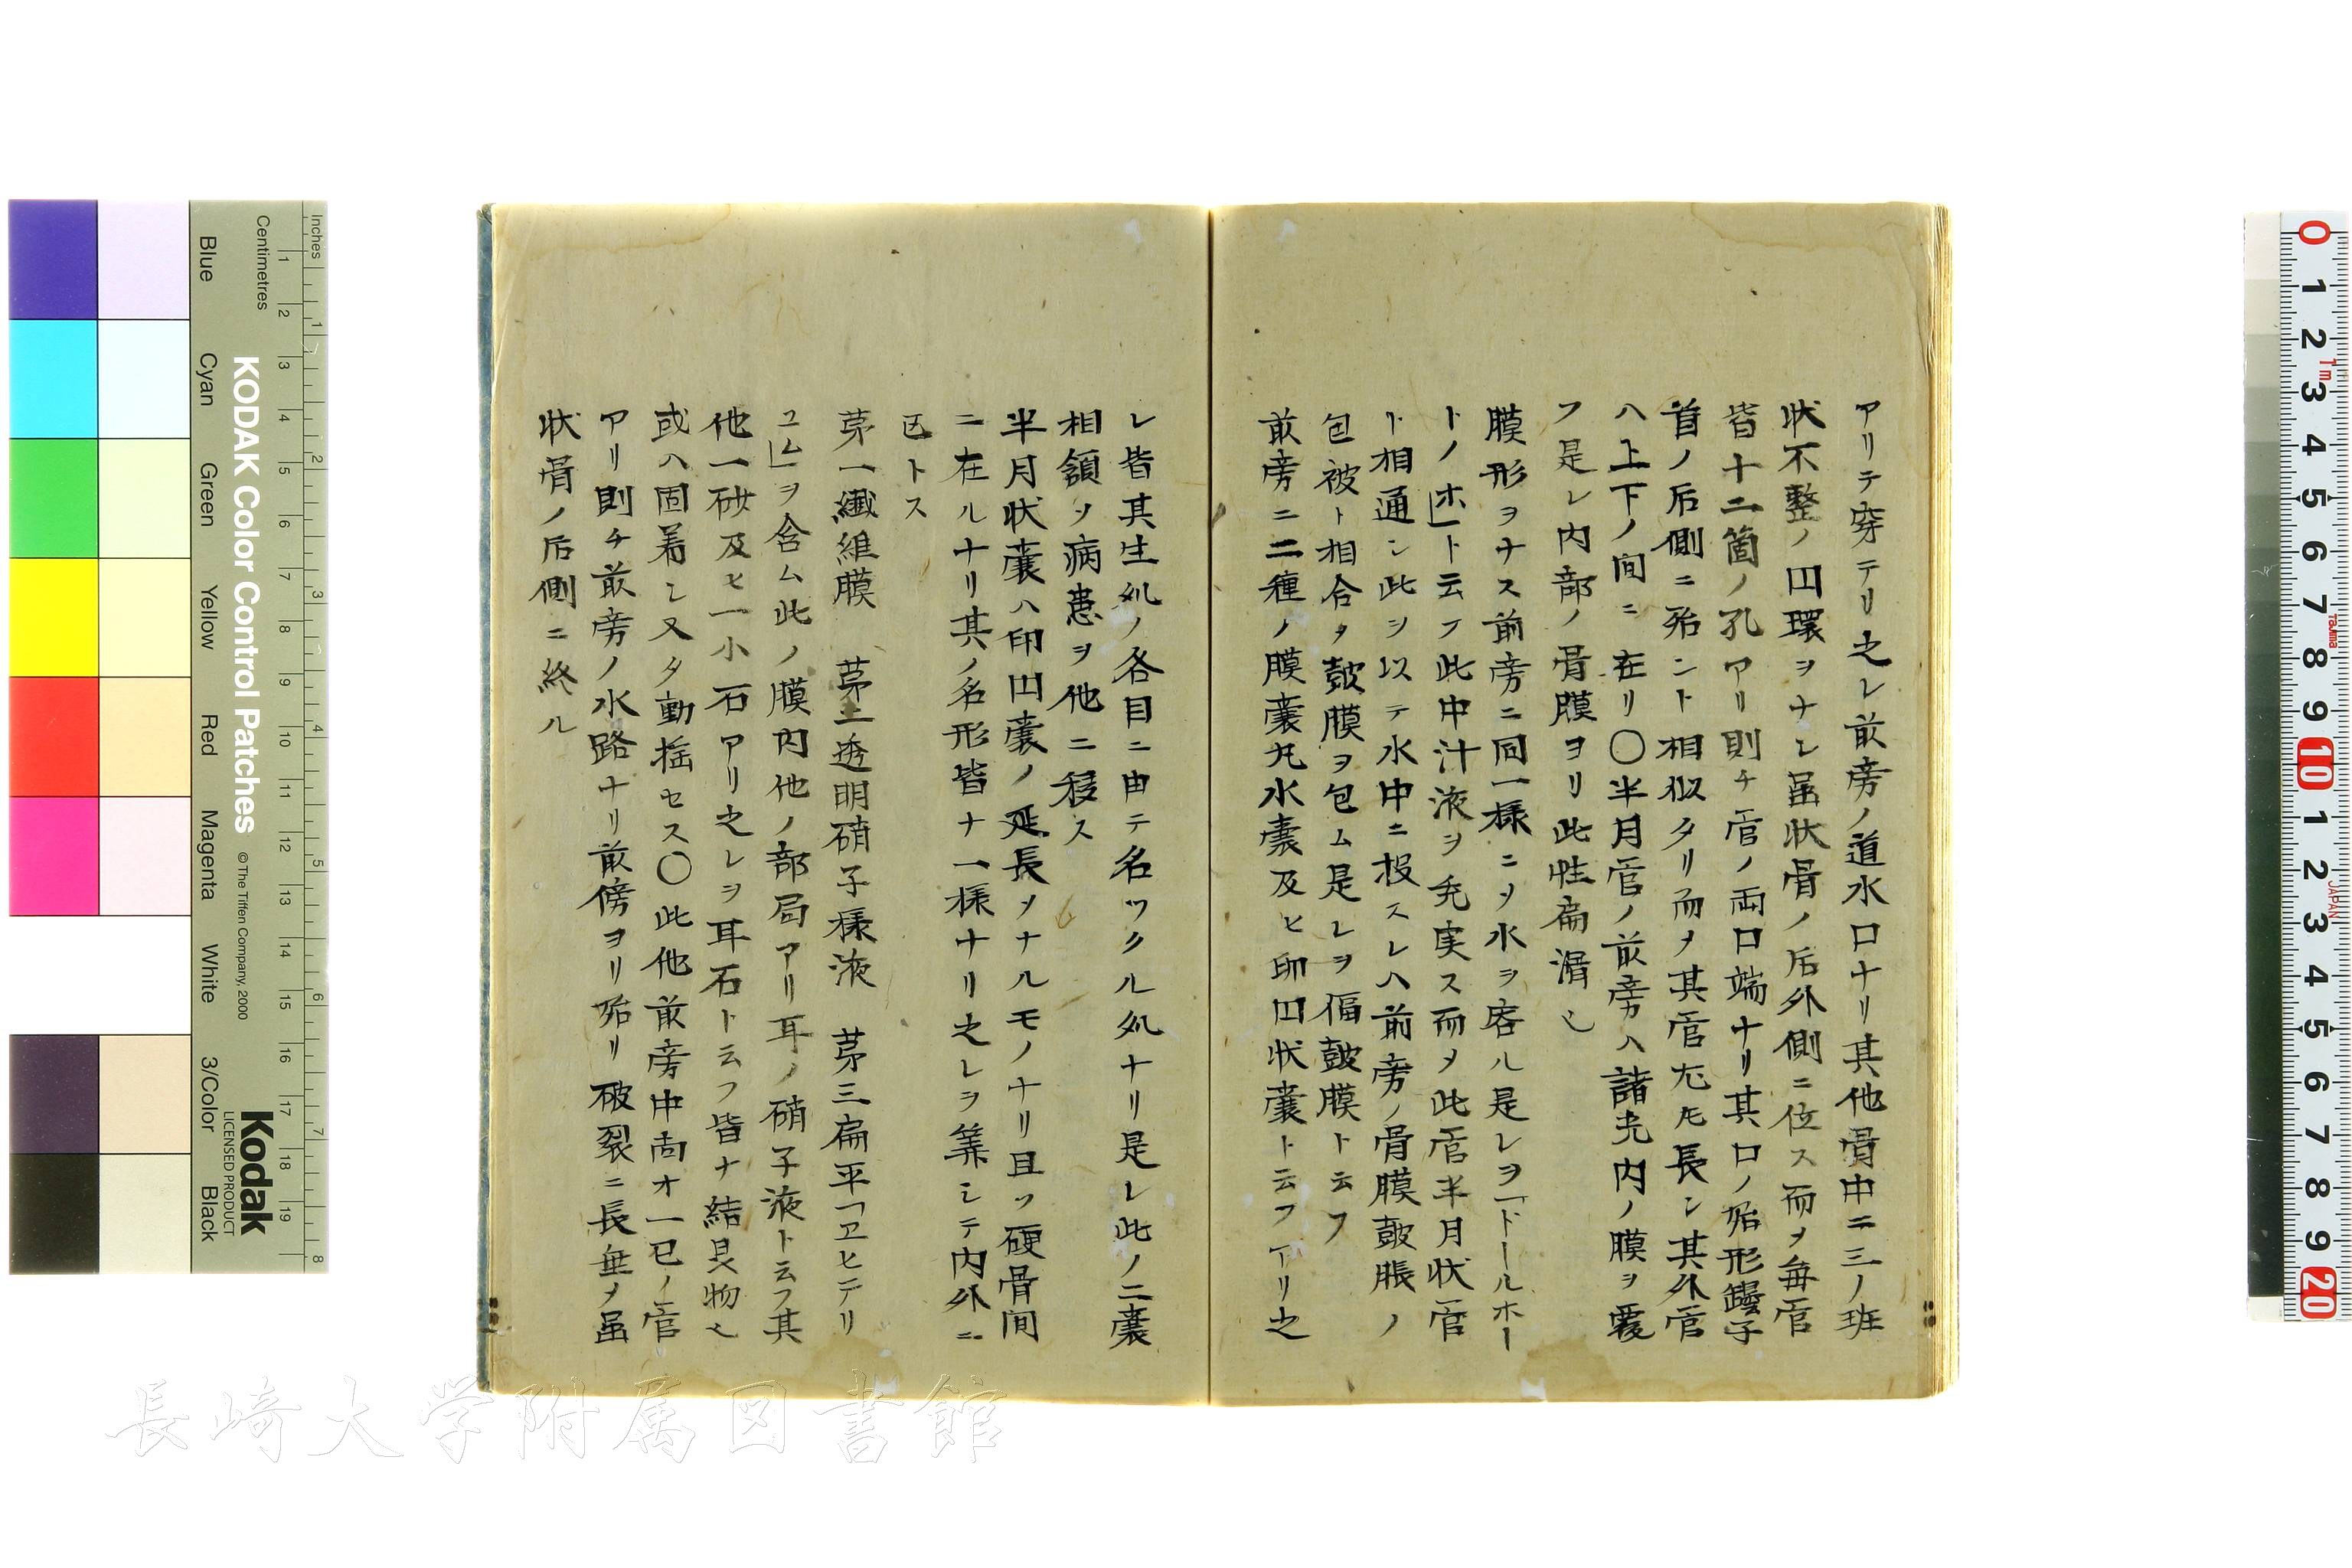 アリテ穿テリ之レ前旁ノ道水口ナリ其他骨中ニ三ノ班
状不整ノ囗環ヲナレ畐状骨ノ后外側ニ位ス而メ毎管
皆十二箇ノ孔アリ則チ管ノ両口端ナリ其口ノ殆形鐘子
首ノ后側ニ殆ント相似タリ而メ其管尤モ長シ其外管
ハ上下ノ間ニ在リ〇半月管ノ前旁ハ諸売内ノ膜ヲ覆
フ是レ内部ノ骨膜ヨリ此性扁滑
膜形ヲナス前旁ニ同一様ニメ水ヲ容ル是レヲ「ドールホー
トノホ」ト云フ此中汁液ヲ充実ス而メ此管半月状管
ト相通シ此ヲ以テ水中ニ投スレハ前旁ノ骨膜皷脹ノ
包被ト相合メ皷膜ヲ包ム是レヲ偪皷膜ト云フ
前旁ニ二種ノ膜嚢凡水嚢及ヒ卵囗状嚢ト云フアリ之
レ皆其生処ノ各目ニ由テ名ツクル処ナリ是レ此ノ二嚢
相領メ病患ヲ他ニ移ス
半月状嚢ハ卵囗嚢ノ延長メナルモノナリ且ツ硬骨間
ニ在ルナリ其ノ名形皆ナ一様ナリ之レヲ筭シテ内外ニ
匹トス
第一繊維膜 第二透明硝子様液 第三扁平「ヱヒデリ
ユム」ヲ含ム此ノ膜内他ノ部局アリ耳ノ硝子液ト云フ其
他一砂及ヒ一小石アリ之レヲ耳石ト云フ皆ナ結晶物也
或ハ固着シ又タ動揺セス〇此他前旁中尚オ一已ノ管
アリ則チ前旁ノ水路ナリ前傍ヨリ殆リ破裂ニ長垂メ畐
状骨ノ后側ニ終ル
Inches
Centimetres
KODAK Color Control Patches
©The Tiffen Company, 2000
Kodak
LICENSED PRODUCT
Blue
Cyan
Green
Yellow
Red
Magenta
White
3/Color
Black
長崎大学附属図書館